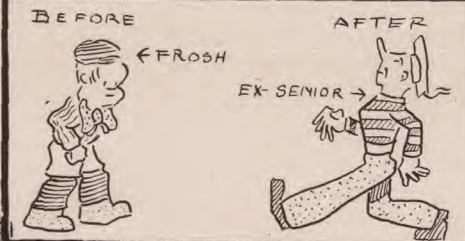 BEFORE
← FROSH
AFTER
EX-SENIOR →